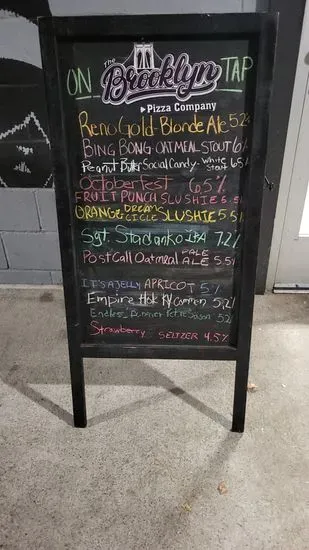 The
ON Brooklyn TAP
Pizza Company
Reno Gold-Blonde Ale 5.2%
BING BONG-OATMEAL STOUT 6%
Peanut Butter Social Candy- White Stout 6.5%
Octoberfest 6.5%
FRUIT PUNCH SLUSHIE 5.5%
ORANGE DREAMCICLE SLUSHIE 5.5%
Sgt. Stadanko IPA 7.2%
Post Call Oatmeal PALE ALE 5.5%
IT'S A JELLY APRICOT 5%
Empire Common 5.2%
Endless Summer 5.2%
Strawberry SELTZER 4.5%